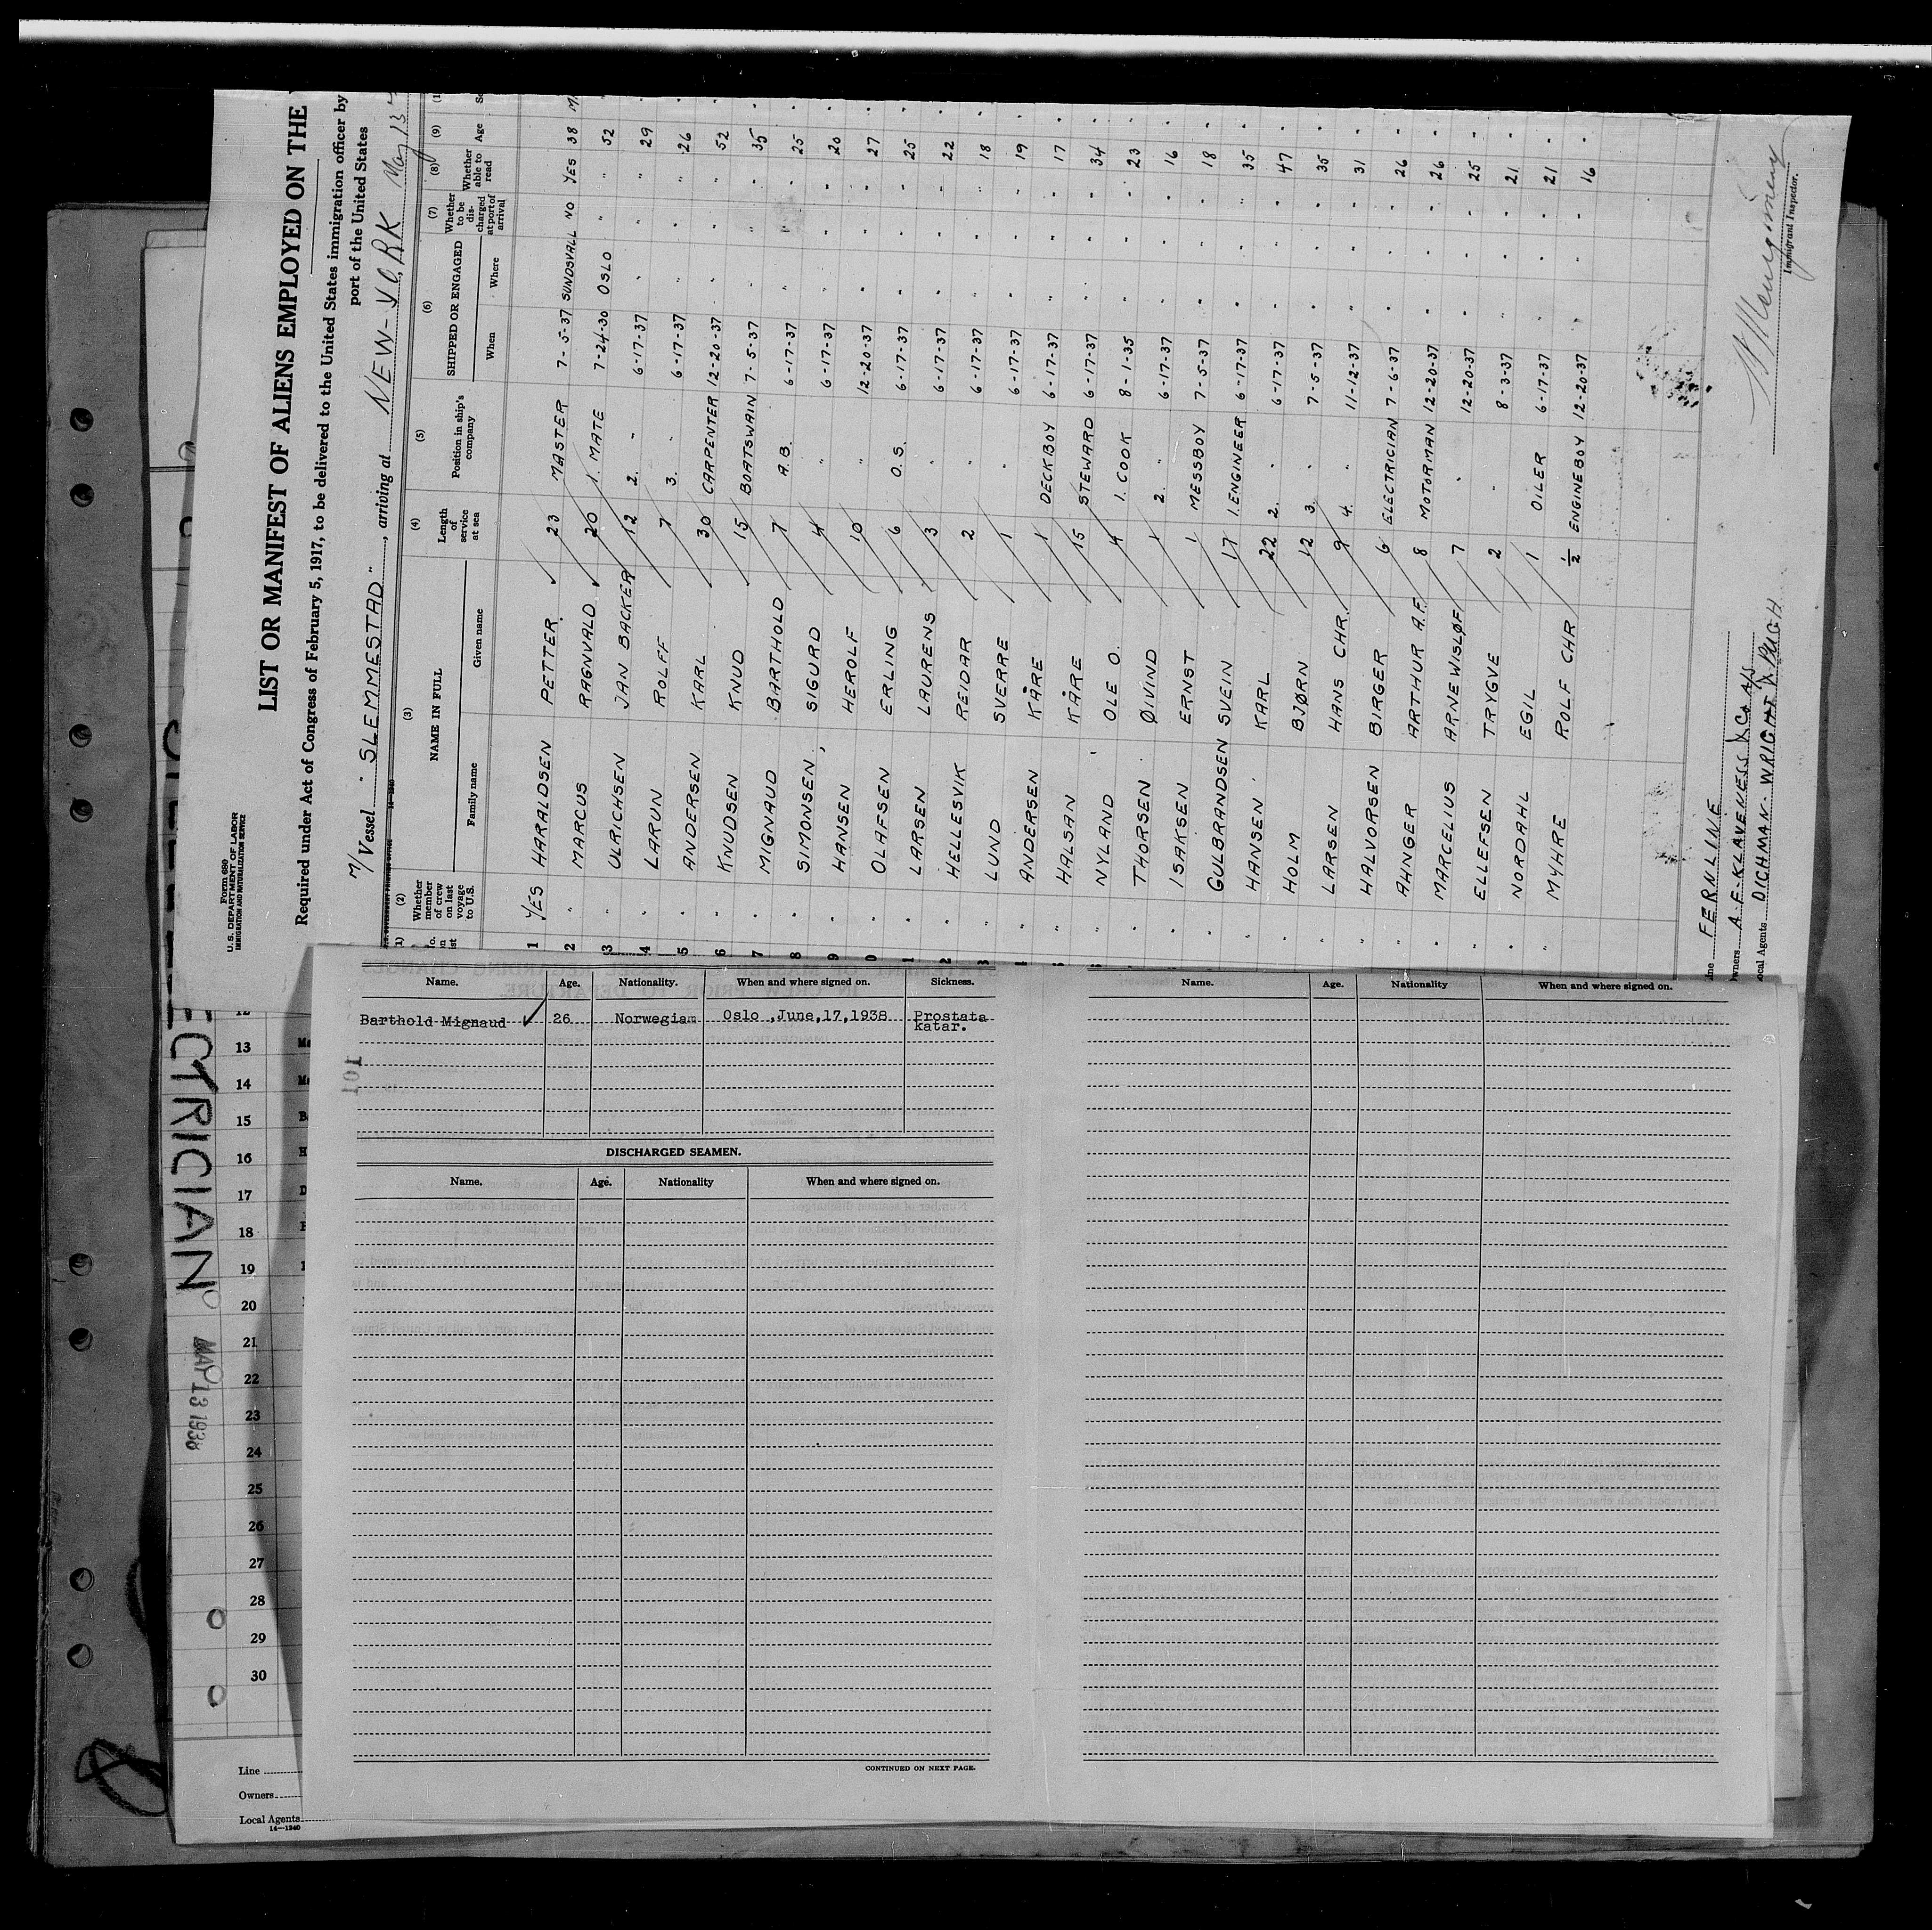 Form 680
U.S. DEPARTMENT OF LABOR
IMMIGRATION AND NATURALIZATION SERVICE
LIST OR MANIFEST OF ALIENS EMPLOYED ON THE
Required under Act of Congress of February 5, 1917, to be delivered to the United States immigration officer by
port of the United States
M/Vessel "SLEMMESTAD", arriving at NEW-YORK May 13
(2) (3) (4) (5) (6) (7) (8) (9)
Whether member of crew on last voyage to U.S. NAME IN FULL Length of service at sea Position in ship's company SHIPPED OR ENGAGED Whether to be discharged at port of arrival Whether able to read Age
Family name Given name When Where
1 YES HARALDSEN PETTER 23 MASTER 7-5-37 SUNDSVALL NO YES 38
2 " MARCUS RAGNVALD 20 1. MATE 7-24-30 OSLO " " 52
3 " ULRICHSEN JAN BACKER 12 2. " 6-17-37 " " " 29
4 " LARUN ROLFF 7 3. " 6-17-37 " " " 26
5 " ANDERSEN KARL 30 CARPENTER 12-20-37 " " " 52
6 " KNUDSEN KNUD 15 BOATSWAIN 7-5-37 " " " 35
7 " MIGNAUD BARTHOLD 7 A.B. 6-17-37 " " " 25
8 " SIMONSEN SIGURD 4 " 6-17-37 " " " 20
9 " HANSEN HEROLF 10 " 12-20-37 " " " 27
0 " OLAFSEN ERLING 6 O.S. 6-17-37 " " " 25
1 " LARSEN LAURENS 3 " 6-17-37 " " " 22
2 " HELLESVIK REIDAR 2 " 6-17-37 " " " 18
" LUND SVERRE 1 " 6-17-37 " " " 19
" ANDERSEN KÅRE 1 DECKBOY 6-17-37 " " " 17
" HALSAN KÅRE 15 STEWARD 6-17-37 " " " 34
" NYLAND OLE O. 4 1. COOK 8-1-35 " " " 23
" THORSEN ØIVIND 1 2. " 6-17-37 " " " 16
" ISAKSEN ERNST 1 MESSBOY 7-5-37 " " " 18
" GULBRANDSEN SVEIN 17 1.ENGINEER 6-17-37 " " " 35
" HANSEN KARL 22 2. " 6-17-37 " " " 47
" HOLM BJØRN 12 3. " 7-5-37 " " " 35
" LARSEN HANS CHR. 9 4. " 11-12-37 " " " 31
" HALVORSEN BIRGER 6 ELECTRICIAN 7-6-37 " " " 26
" AHNGER ARTHUR A.F. 8 MOTORMAN 12-20-37 " " " 26
" MARCELIUS ARNE WISLØF 7 " 12-20-37 " " " 25
" ELLEFSEN TRYGVE 2 " 8-3-37 " " " 21
" NORDAHL EGIL 1 OILER 6-17-37 " " " 21
" MYHRE ROLF CHR ½ ENGINEBOY 12-20-37 " " " 16
FERNLINE
A.F. KLAVENESS & Co A/S
Local Agents DICHMAN WRIGHT & PUGH
Immigrant Inspector.
Name. Age. Nationality. When and where signed on. Sickness.
Barthold Mignaud 26 Norwegian Oslo ,June,17,1938 Prostata
katar.
101
DISCHARGED SEAMEN.
Name. Age. Nationality When and where signed on.
CONTINUED ON NEXT PAGE.
Name. Age. Nationality When and where signed on.
ECTRICIAN
MAY 13 1938
12
13
14
15
16
17
18
19
20
21
22
23
24
25
26
27
28
29
30
Line
Owners
Local Agents
14—1240